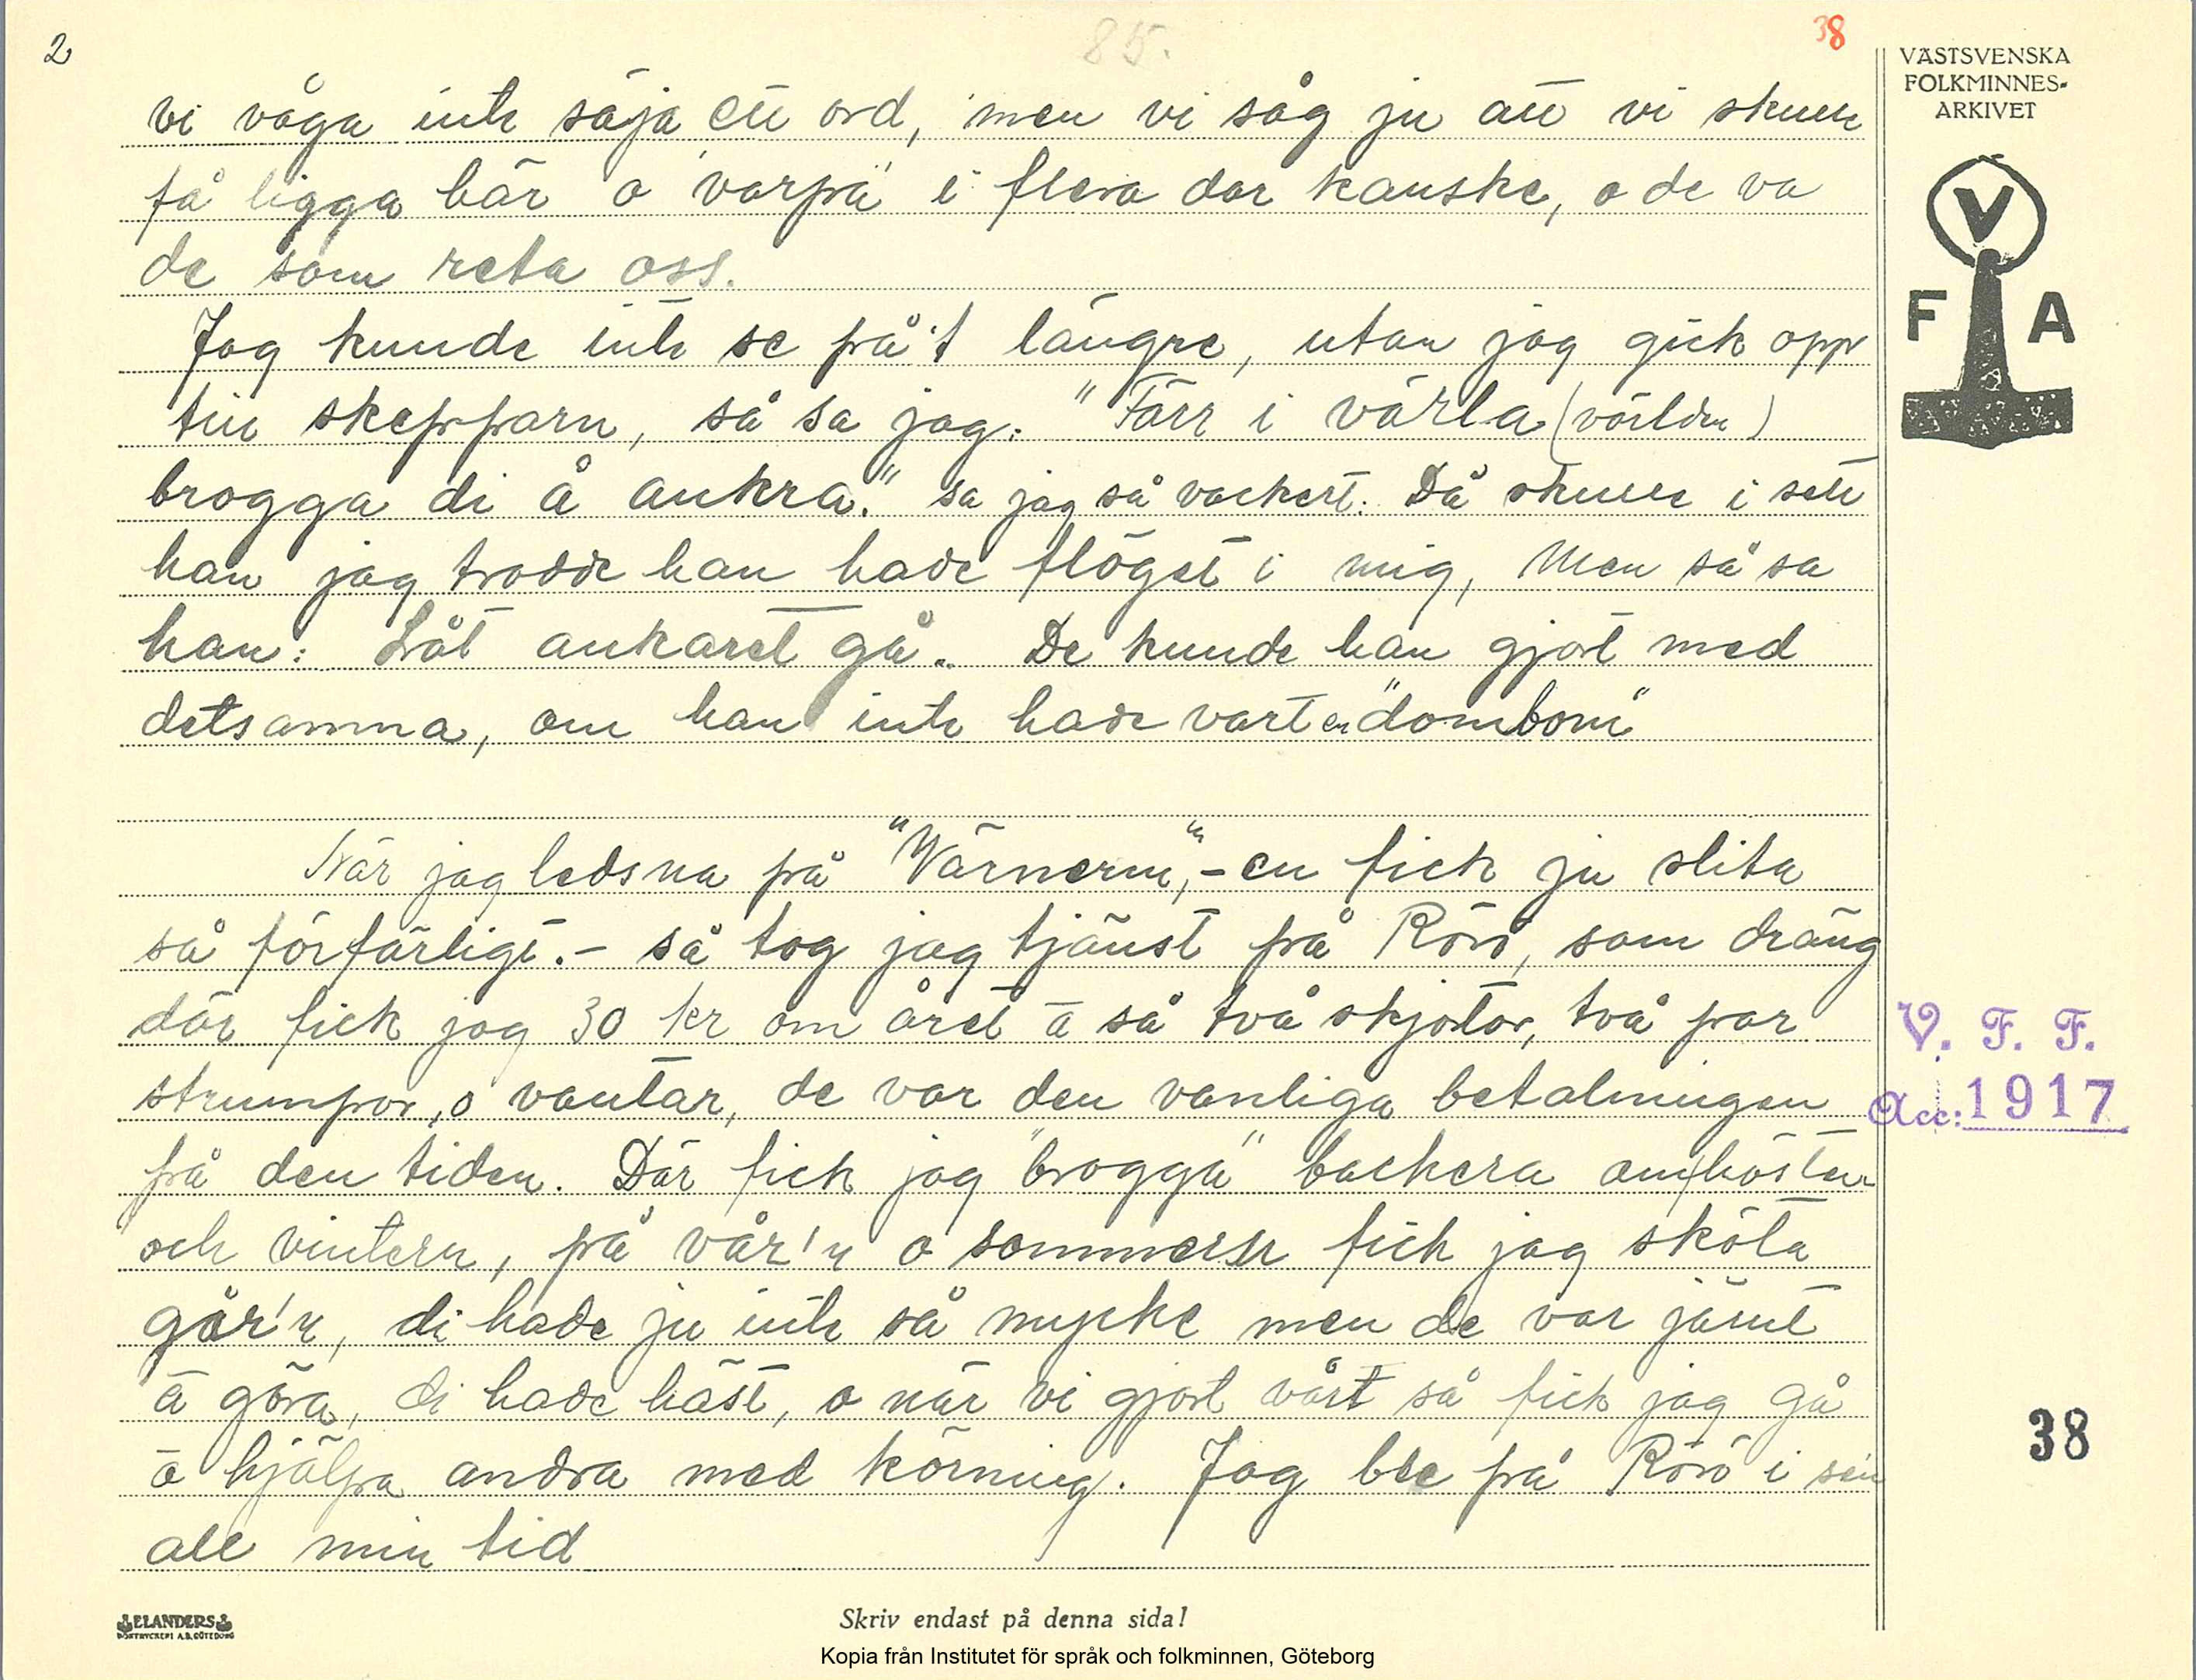 2
85.
38
VÄSTSVENSKA
FOLKMINNES-
ARKIVET
V
F A
vi våga inte säja ett ord, men vi såg ju att vi skulle
få ligga här o "varpa" i flera dar kanske, o de va
de som reta oss.
Jag kunde inte se på't längre, utan jag gick opp
till skepparn, så sa jag: "Förr i värla (världen)
brogga di å ankra." sa jag så vackert. Då skulle i sett
han jag trodde han hade flöget i mig, Men så sa
han: Låt ankaret gå. De kunde han gjort med
detsamma, om han inte hade vart en "dombom"
När jag ledsna på "Wärnern", - en fick ju slita
så förfärligt. - så tog jag tjänst på Rörö, som dräng
där fick jag 30 kr om året å så två skjotor, två par
strumpor, o vantar, de var den vanliga betalningen
på den tiden. Där fick jag "brogga" backera om hösten
och vintern, på vår'n o sommern fick jag sköta
går'n, di hade ju inte så mycke men de var jämt
å göra, di hade häst, o när vi gjort vårt så fick jag gå
å hjälpa andra med körning. Jag ble på Rörö i sin
all min tid
V. F. F.
Acc: 1917
38
ELANDERS
BOKTRYCKERI A.B. GÖTEBORG
Skriv endast på denna sida!
Kopia från Institutet för språk och folkminnen, Göteborg